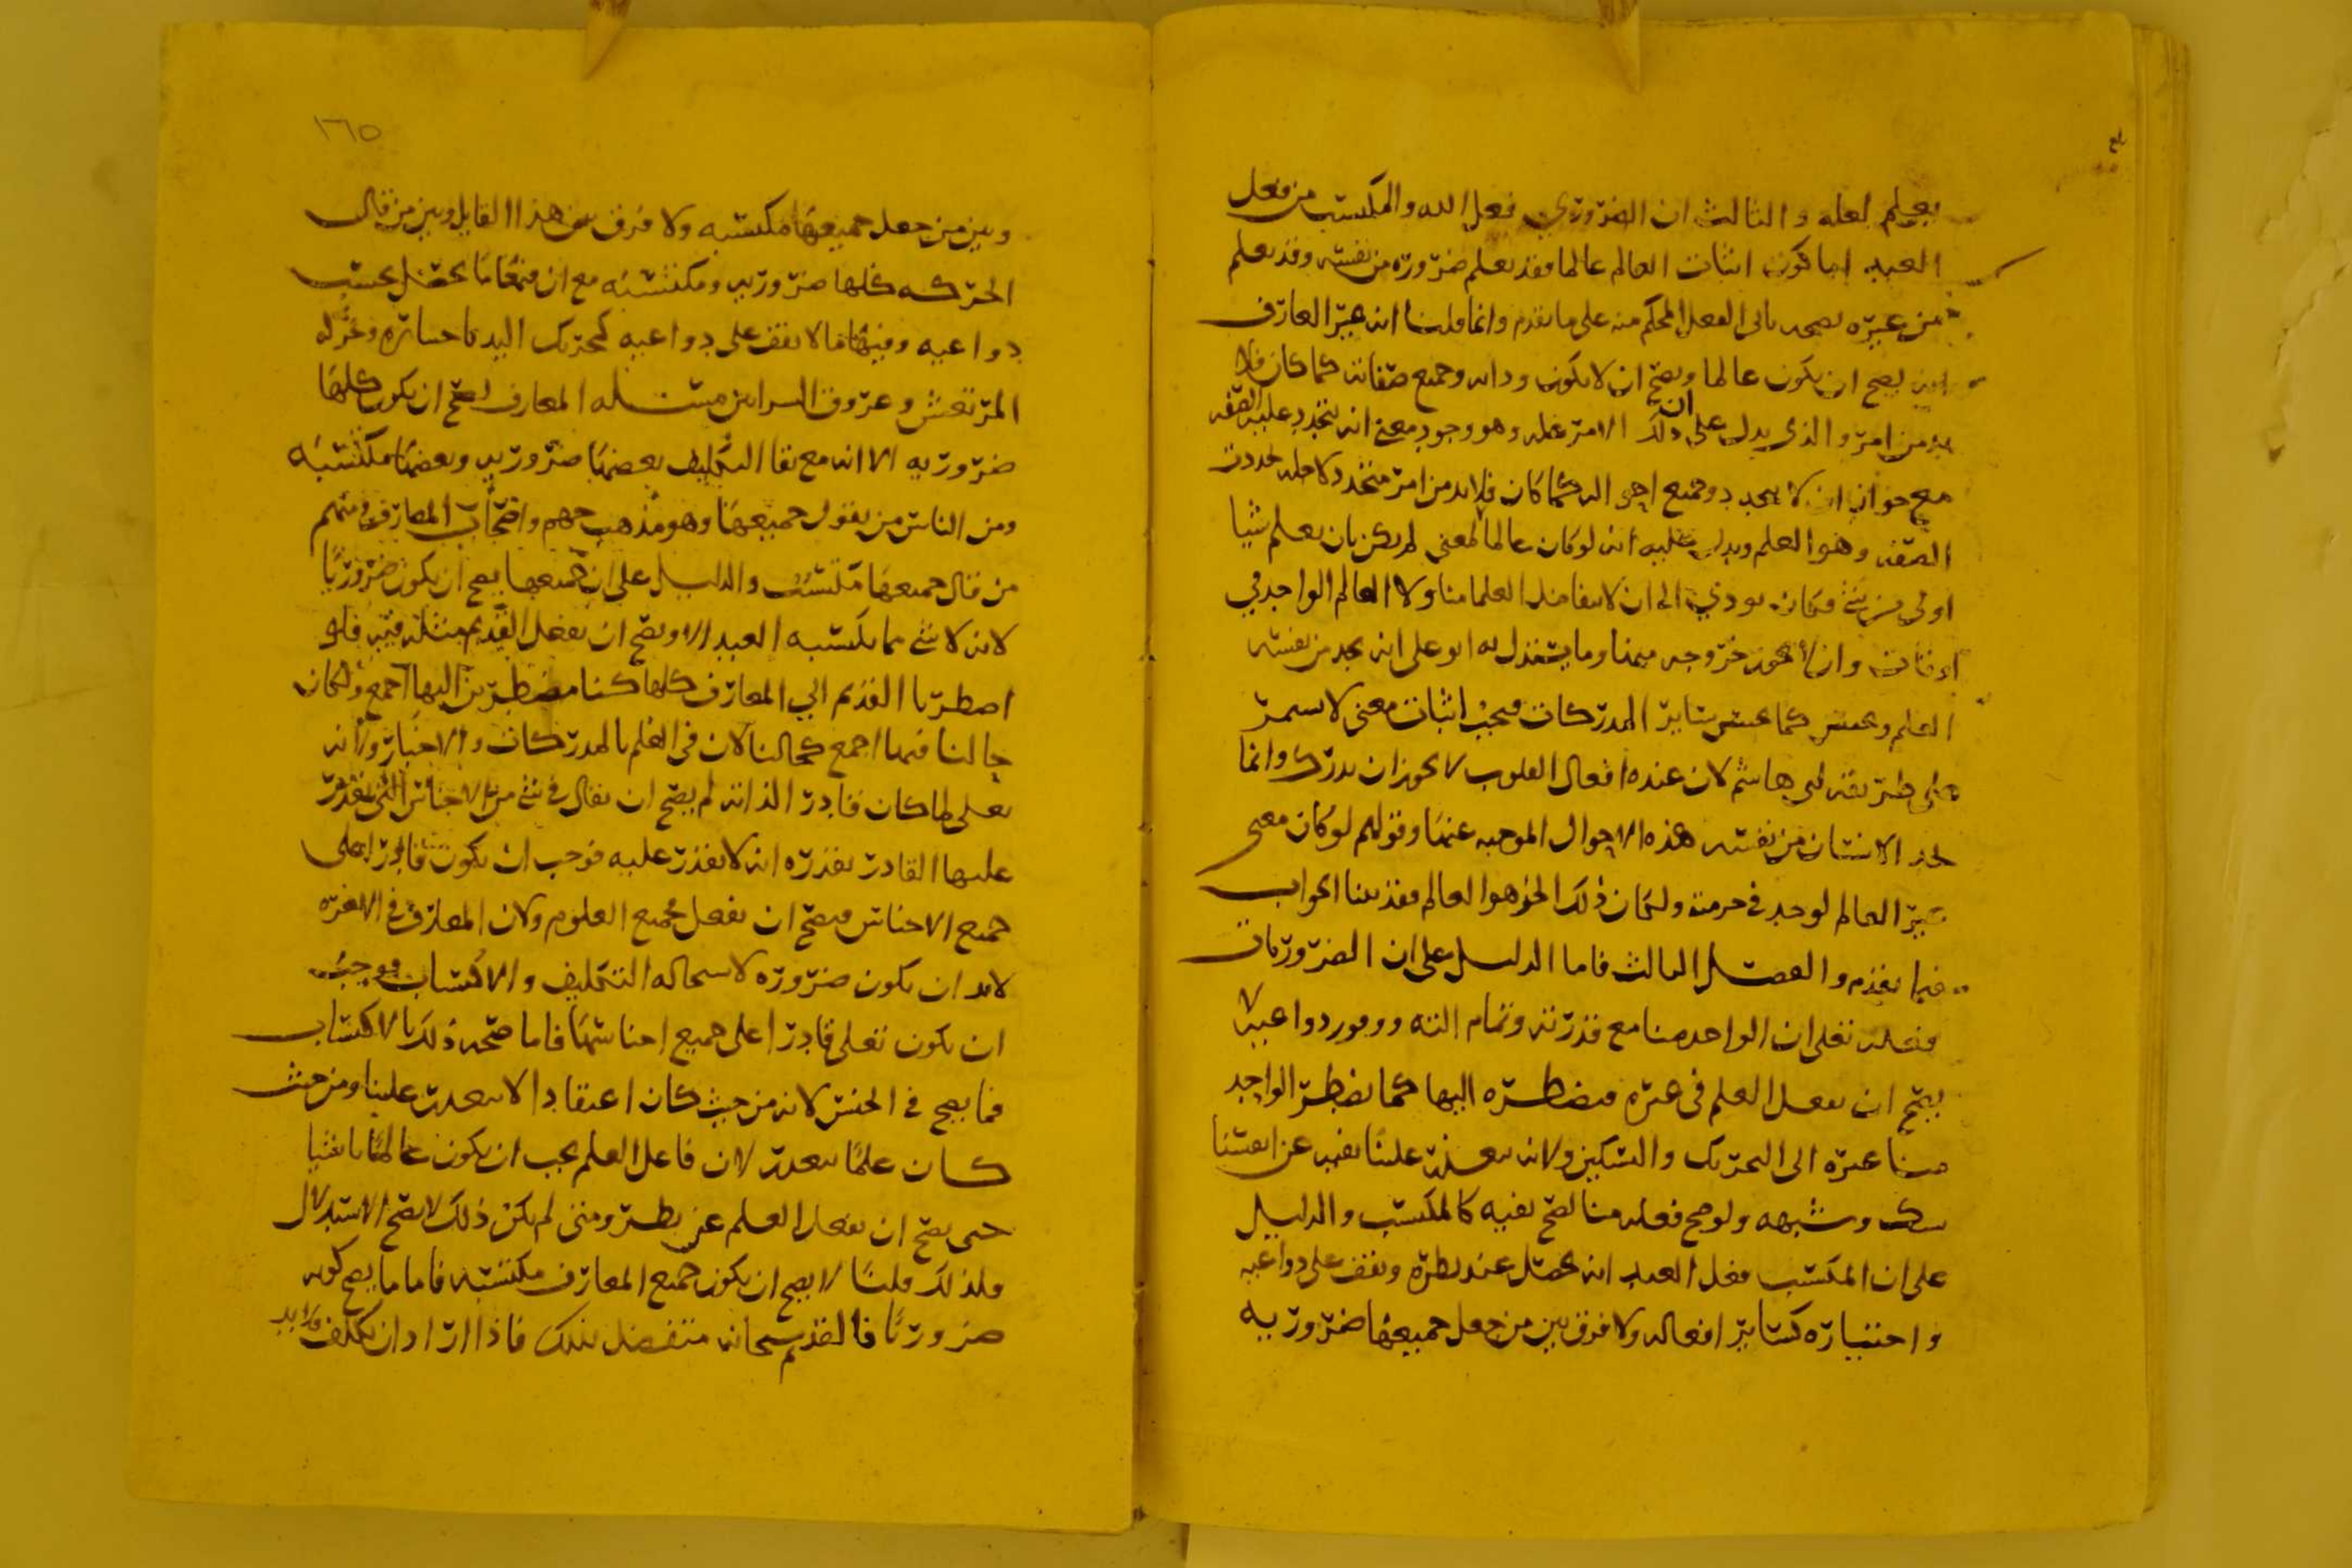 يعلم لعله والثالث ان الضروري فعل الله والمكتسب من فعل
العبد اما كون اثبات العالم عالما فقد يعلم ضرورة من نفسه وقد يعلم
من غيره بصحة تاتى الفعل المحكم منه على ما تقدم وانما قلنا ان غير العارف
يصح ان يكون عالما ويصح ان لا يكون وذاته وجميع صفاته كما كان فلا
بد من امر والذي يدل على ان ذلك الامر علة وهو وجود معنى انه تتجدد عليه الصفة
مع جواز ان لا تتجدد وجميع احواله كما كان فلا بد من امر متجدد لاجله تجددت
الصفة وهو العلم ويدل عليه انه لو كان عالما لا لمعنى لم يكن بان يعلم شيا
اولى من شي فكان يودي الى ان لا يتفاضل العلما منا ولا العالم الواحد في
اوقاته وان لا يجوز خروجه عنها وما يستدل به ابو على انه يجد من نفسه
العلم ويحس كما يحس بساير المدركات فيجب اثبات معنى لا يستمر
على طريقة ابي هاشم لان عنده افعال القلوب لا يجوز ان تدرك وانما
يجد الانسان من نفسه هذه الاحوال الموجبة عنها وقولهم لو كان معنى
غير العالم لوجد في جزء منه ولكان ذلك الجزء هو العالم فقد بينا الجواب
فيما تقدم والفصل الثالث فاما الدليل على ان الضروريات
فعله تعلى ان الواحد منا مع قدرته وتمام الته ووفور دواعيه لا
يصح ان يفعل العلم في غيره فيضطره اليها كما يضطر الواحد
منا غيره الى التحريك والتسكين ولانه يتعذر علينا نفيه عن انفسنا
بشك وشبهه ولو صح فعله منا لصح نفيه كالمكتسب والدليل
على ان المكتسب فعل العبد انه يحصل عند نظره ويقف على دواعيه
واختياره كساير افعاله ولا فرق بين من جعل جميعها ضرورية
١٦٥
وبين من جعل جميعها مكتسبه ولا فرق بين هذا القايل وبين من قال
الحركة كلها ضرورية ومكتسبه مع ان منها ما يحصل بحسب
دواعيه وفيها ما لا يقف على دواعيه كتحريك اليد باختياره وحركة
المرتعش وعروق الشراين مسئله المعارف يصح ان يكون كلها
ضروريه الا انه مع بقا التكليف بعضها ضروريه وبعضها مكتسبه
ومن الناس من يقول جميعها وهو مذهب جهم واصحاب المعارف ومنهم
من قال جميعها مكتسب والدليل على ان جميعها يصح ان يكون ضروريا
لانه لا شي مما يكتسبه العبد الا ويصح ان يفعل القديم مثله فيه فلو
اضطرنا القديم الي المعارف كلها كنا مضطرين اليها اجمع ولكان
حالنا فيها اجمع كحالنا الان في العلم بالمدركات والاخبار ولانه
تعلى لما كان قادر الذاته لم يصح ان يقال في شي من الاجناس التي يقدر
عليها القادر بقدره انه لا يقدر عليه فوجب ان يكون قادرا على
جميع الاجناس فيصح ان يفعل جميع العلوم ولان المعارف في الاخره
لابد ان يكون ضرورة لاستحاله التكليف والاكتساب فوجب
ان يكون تعلى قادرا على جميع اجناسها فاما صحة ذلك بالاكتساب
فما يصح في الجنس لانه من حيث كان اعتقادا لا يتعذر علينا ومن حيث
كان علما يتعذر لان فاعل العلم يجب ان يكون عالما باشيا
حتى يصح ان يفعل العلم عن نظر ومتى لم يكن ذلك لا يصح الاستدلال
ولذلك قلنا لا يصح ان يكون جميع المعارف مكتسبه فاما ما يصح كونه
ضروريا فالقديم سبحانه متفضل بذلك فاذا اراد ان يكلف فلا بد